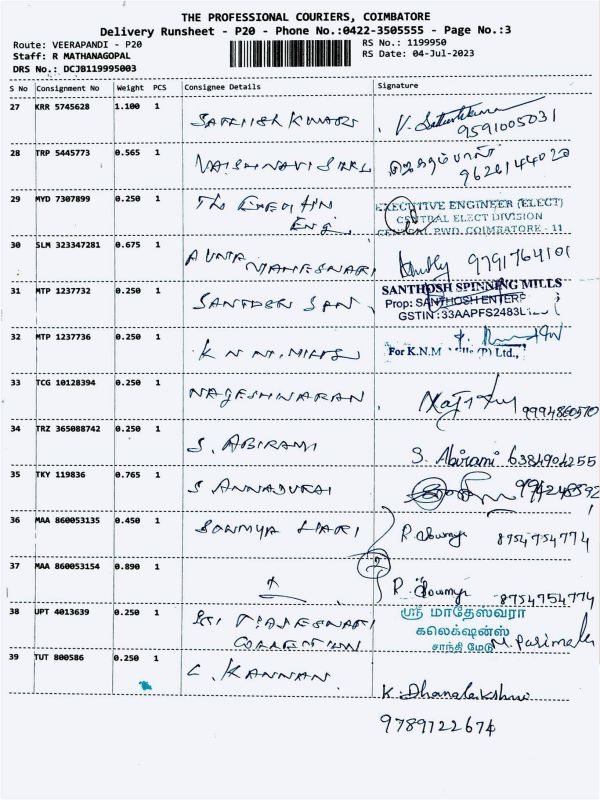 THE PROFESSIONAL COURIERS, COIMBATORE
Delivery Runsheet - P20 - Phone No.:0422-3505555 - Page No.:3
Route: VEERAPANDI - P20
RS No.: 1199950
Staff: R MATHANAGOPAL
RS Date: 04-Jul-2023
DRS No.: DCJB119995003
S No Consignment No Weight PCS Consignee Details Signature
27 KRR 5745628 1.100 1
9591005031
28 TRP 5445773 0.565 1 VAISHNAVI
29 MYD 7307899 0.250 1 The
Eng.
EXECUTIVE ENGINEER (ELECT)
CENTRAL ELECT DIVISION
PWD. COIMBATORE - 11
30 SLM 323347281 0.675 1
9791764101
31 MTP 1237732 0.250 1
SANTHOSH SPINNING MILLS
Prop: SANTHOSH ENTERP
GSTIN :33AAPFS2483L
32 MTP 1237736 0.250 1 K N M. MILLS
For K.N.M Mills (P) Ltd.,
33 TCG 10128394 0.250 1 NAGESHWARAN
9994860570
34 TRZ 365088742 0.250 1 S. ABIRAMI S. Abirami 6384904255
35 TKY 119836 0.765 1 S ANNADURAI
36 MAA 860053135 0.450 1 SOWMYA HARI R. 8754754774
37 MAA 860053154 0.890 1 R. Sowmya 8754754774
38 UPT 4013639 0.250 1 SRI RAJESWARI
COLLECTION
ஸ்ரீ மாதேஸ்வரா
கலெக்ஷன்ஸ்
சாந்தி மேடு
M. Parimala
39 TUT 800586 0.250 1 C. KANNAN
K. Dhanalakshmi
9789722674